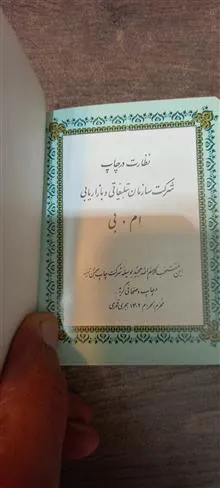 نظارت در چاپ
شرکت سازمان تبلیغاتی و بازاریابی
ام . بی
این منتخب کلام الله مجید بوسیله شرکت چاپ
در چاپ و صحافی گردید
محرم الحرام ۱۴۰۲ هجری قمری